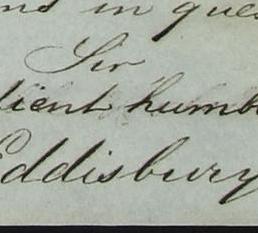 ns in ques
Sir
dient humb
Eddisbury